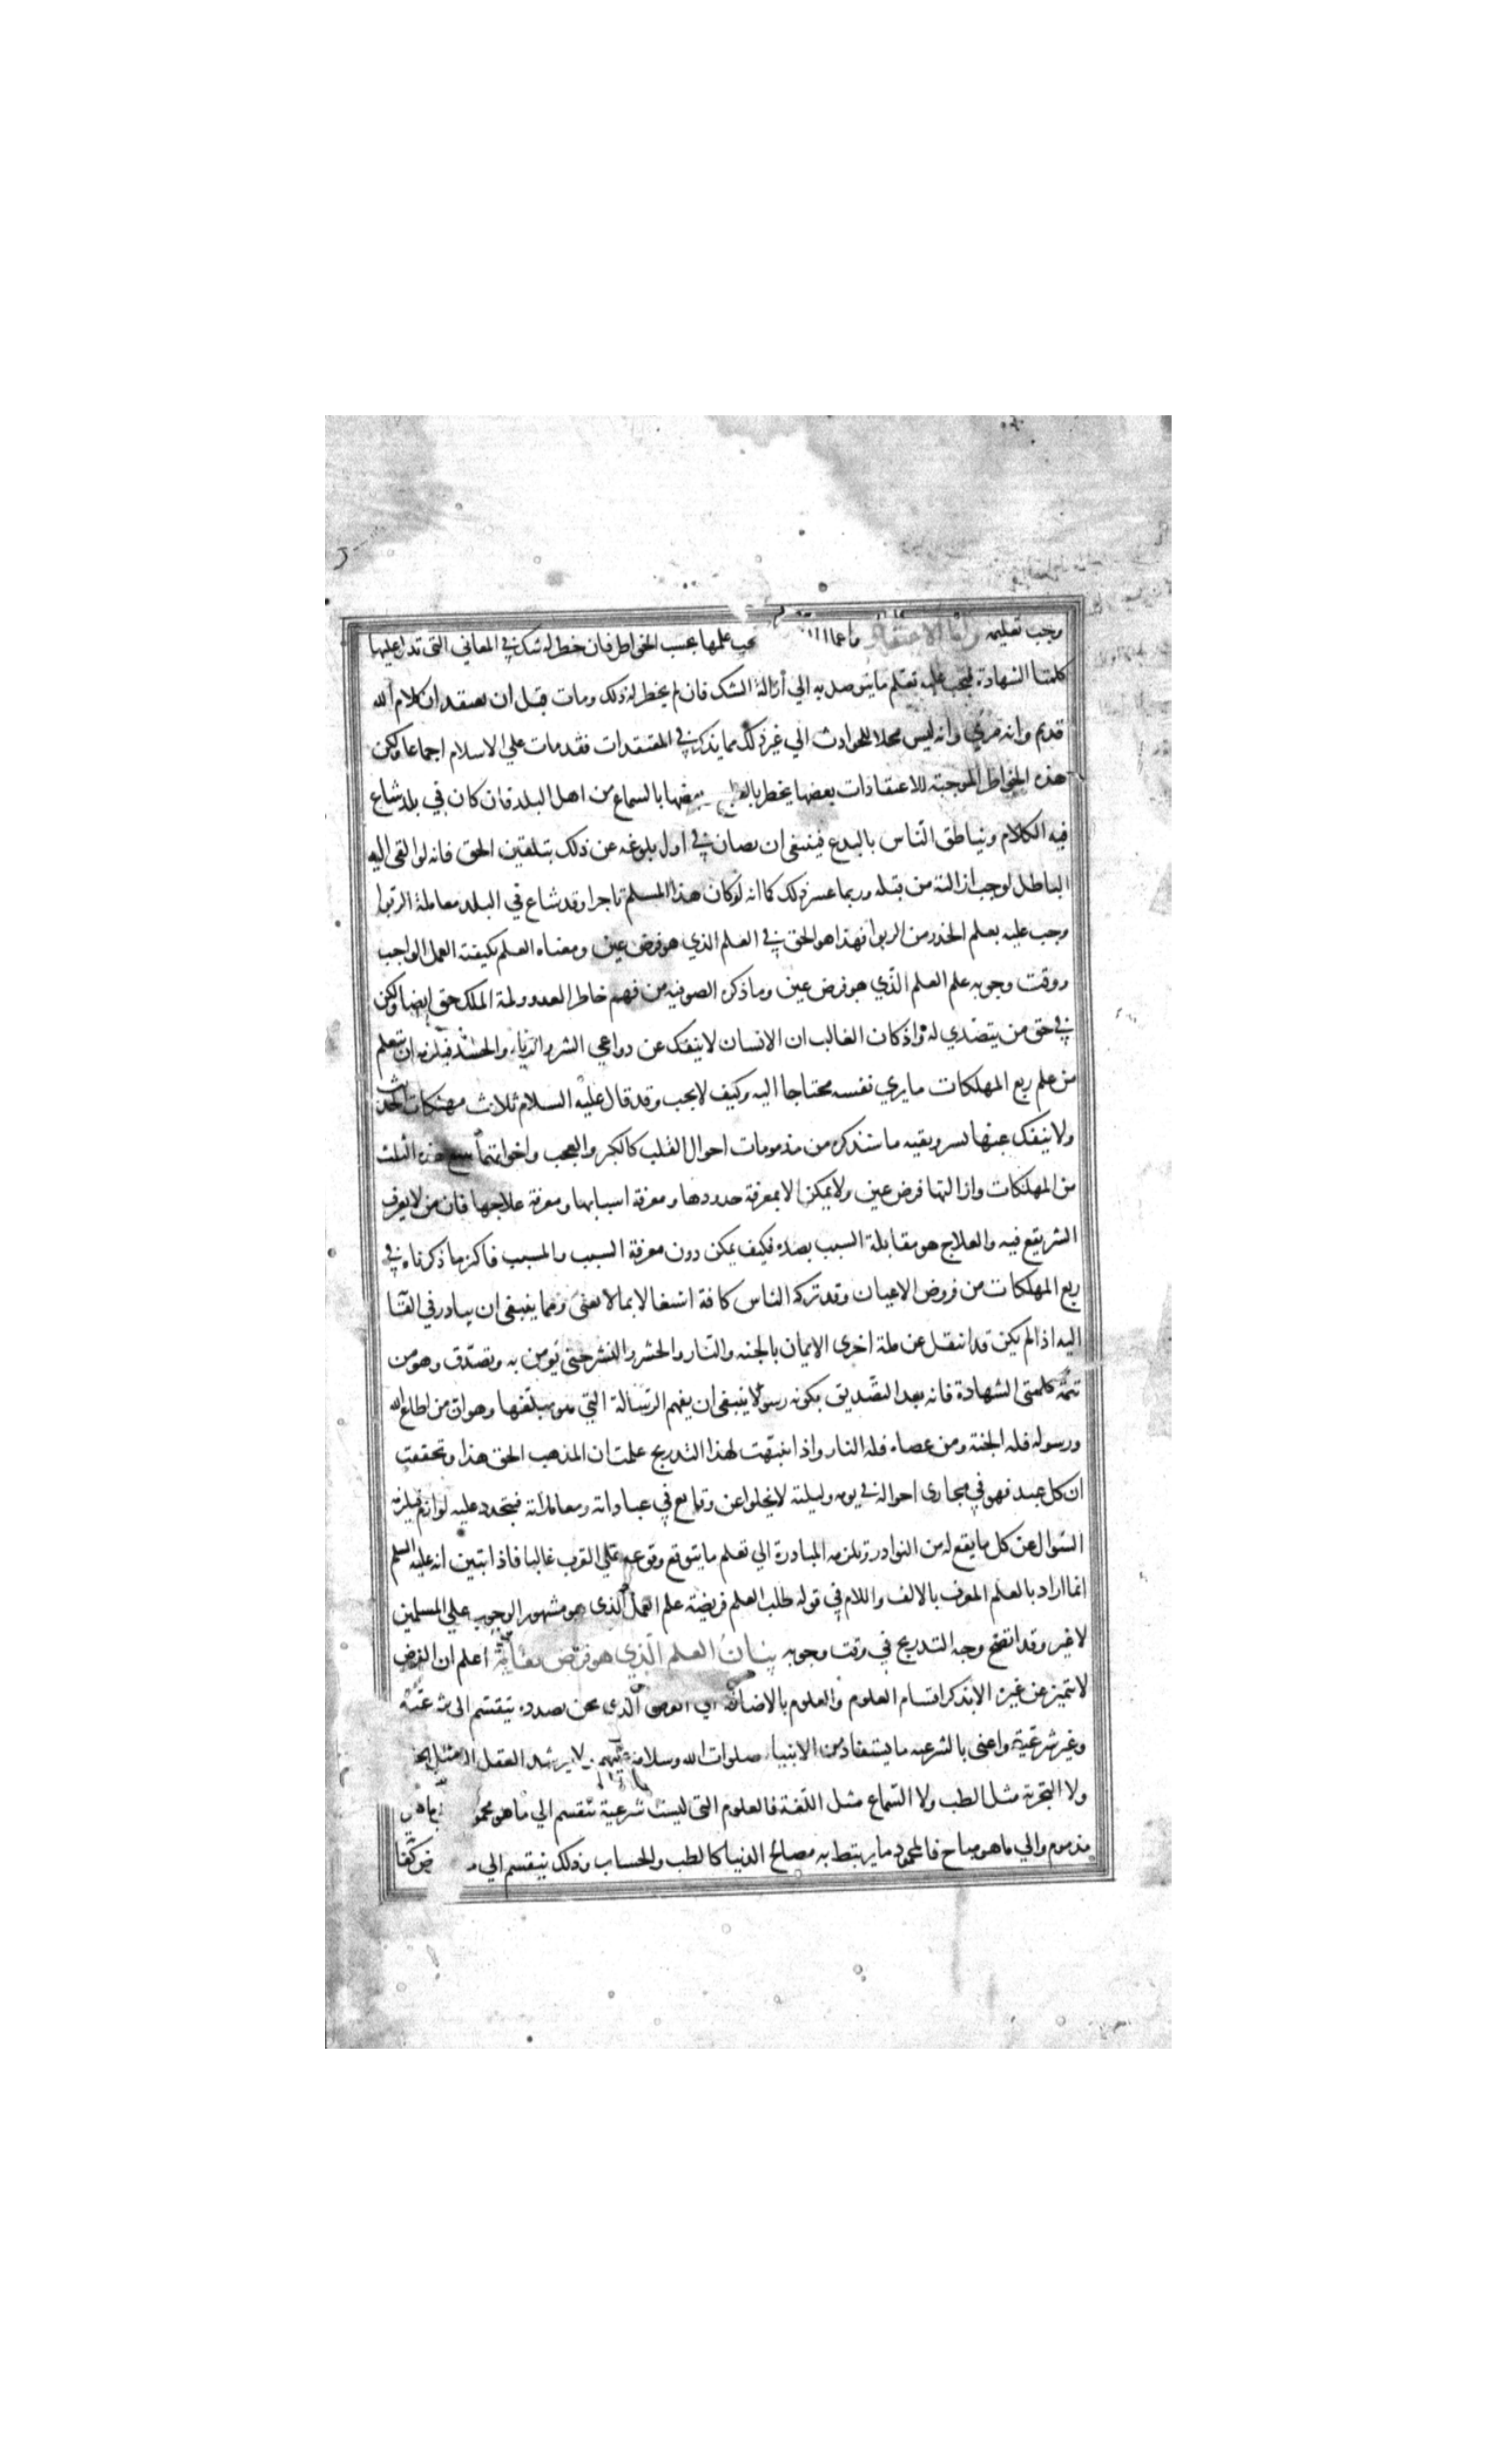 وجب تعليمه واما الاعتقاد واعما يجب علمها بحسب الخواطر فان خطر له شك في المعاني التى تدل عليها
كلمتا الشهادة فيجب عليه تعلم ما يتوصل به الي ازالة الشك فان لم يخطر له ذلك ومات قبل ان يعتقد ان كلام الله
قديم وانه مرئي وانه ليس محلا للحوادث الي غير ذلك مما يذكر في المعتقدات فقد مات علي الاسلام اجماعا ولكن
هذه الخواطر الموجبة للاعتقادات بعضها يخطر بالطبع بعضها بالسماع من اهل البلد فان كان في بلد شاع
فيه الكلام وتناطق الناس بالبدع فينبغى ان يصان في اول بلوغه عن ذلك بتلقين الحق فانه لو القى اليه
الباطل لوجب ازالته من قبله وربما عسر ذلك كما انه لو كان هذا المسلم تاجرا وقد شاع في البلد معاملة الربوا
وجب عليه تعلم الحذر من الربوا فهذا هو الحق في العلم الذي هو فرض عين ومعناه العلم بكيفية العمل الواجب
ووقت وجوبه علم العلم الذي هو فرض عين وما ذكره الصوفيه من فهم خاطر العدو ولمة الملك حق ايضا ولكن
في حق من يتصدي له واذ كان الغالب ان الانسان لا ينفك عن دواعي الشر والرياء والحسد فيلزمه ان يتعلم
من علم ربع المهلكات ما يري نفسه محتاجا اليه وكيف لا يجب وقد قال عليه السلام ثلاث مهلكات الحديث
ولا ينفك عنها بشر وبقيه ما سنذكره من مذمومات احوال القلب كالكبر والعجب واخواتهما تتبع هذه الثلث
من المهلكات وازالتها فرض عين ولا يمكن الا بمعرفة حدودها ومعرفة اسبابها ومعرفة علاجها فان من لا يعرف
الشر يقع فيه والعلاج هو مقابلة السبب بضده فكيف يمكن دون معرفة السبب والمسبب فاكثر ما ذكرناه في
ربع المهلكات من فروض الاعيان وقد تركه الناس كافة اشتغالا بما لا يعنى ومما ينبغى ان يبادر في القا
اليه اذا لم يكن قد انتقل عن ملة اخرى الايمان بالجنه والنار والحشر والنشر حتى يومن به ويصدق وهو من
تتمة كلمتى الشهادة فانه بعد التصديق بكونه رسولا ينبغى ان يفهم الرسالة التي هو مبلغها وهو ان من اطاع الله
ورسوله فله الجنة ومن عصاه فله النار واذا انتبهت لهذا التدريج علمت ان المذهب الحق هذا وتحققت
ان كل عبد فهو في مجارى احواله في يومه وليلته لا يخلوا عن وقايع في عباداته ومعاملاته فيتجدد عليه لوازم فيلزمه
السوال عن كل ما يقع له من النوادر ويلزمه المبادرة الي تعلم ما يتوقع وقوعه علي القرب غالبا فاذا تبين انه عليه السلم
انما اراد بالعلم المعرف بالالف واللام في قوله طلب العلم فريضة علم العمل الذى هو مشهور الوجوب علي المسلمين
لا غير وقد اتضح وجه التدريج في وقت وجوبه بيان العلم الذي هو فرض كفاية اعلم ان الفرض
لا يتميز عن غيره الا بذكر اقسام العلوم والعلوم بالاضافة الي الفرض الذى نحن بصدده ينقسم الى شرعية
وغير شرعية واعنى بالشرعيه ما يستفاد من الانبياء صلوات الله وسلامه عليهم ولا يرشد العقل اليه مثل
ولا التجربة مثل الطب ولا السماع مثل اللغة فالعلوم التى ليست شرعية تنقسم الي ما هو محمود ما هو
مذموم والي ما هو مباح فالمحمود ما يرتبط به مصالح الدنيا كالطب والحساب وذلك ينقسم الي فرض كفا